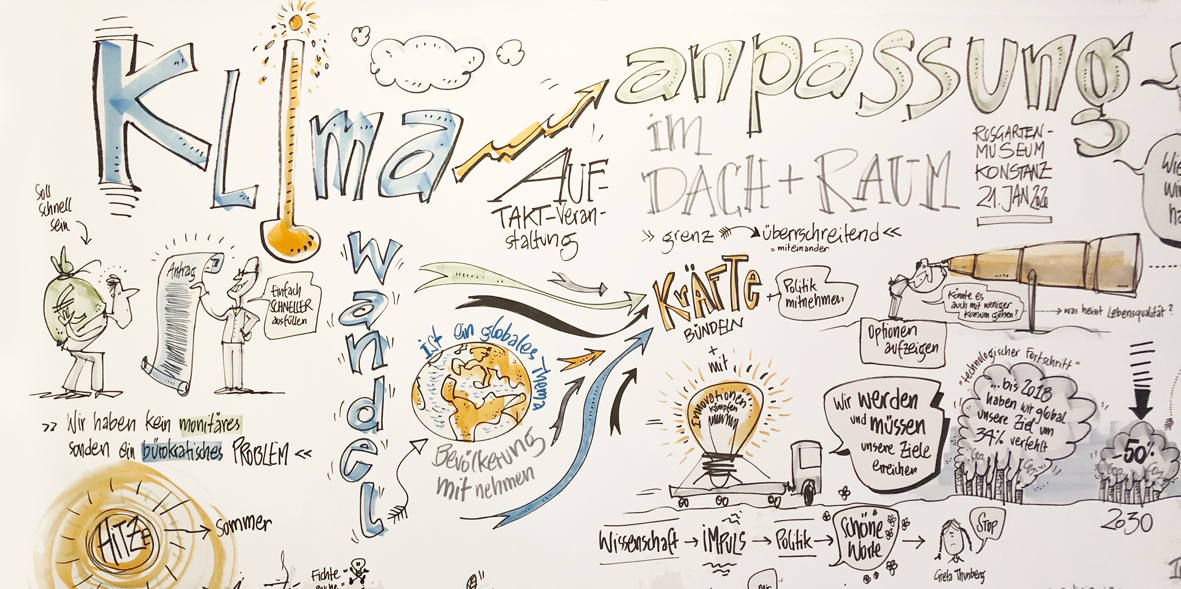 Klima
anpassung
im
DACH + RAUM
AUF-
TAKT-Veran-
staltung
ROSGARTEN-
MUSEUM
KONSTANZ
21. JAN 22
>> grenz überschreitend <<
= miteinander
wandel
Soll
schnell
sein
Antrag
Einfach
SCHNELLER
ausfüllen
>> Wir haben kein monitäres
sonden ein bürokratisches PROBLEM <<
HITZE
Sommer
Fichte
ist ein globales Thema
Bevölkerung
mit nehmen
KRÄFTE
BÜNDELN
+ Politik
mitnehmen
+
mit
Innovationen
kämpfen
Optionen
aufzeigen
Könnte es
auch mit weniger
Konsum gehen?
was heisst Lebensqualität?
Wir werden
und müssen
unsere Ziele
erreichen
"technologischer Fortschritt"
...bis 2018
haben wir global
unsere Ziel um
34% verfehlt
-50%
2030
Wissenschaft → IMPULS → Politik → Schöne
Worte
Stop
Greta Thunberg